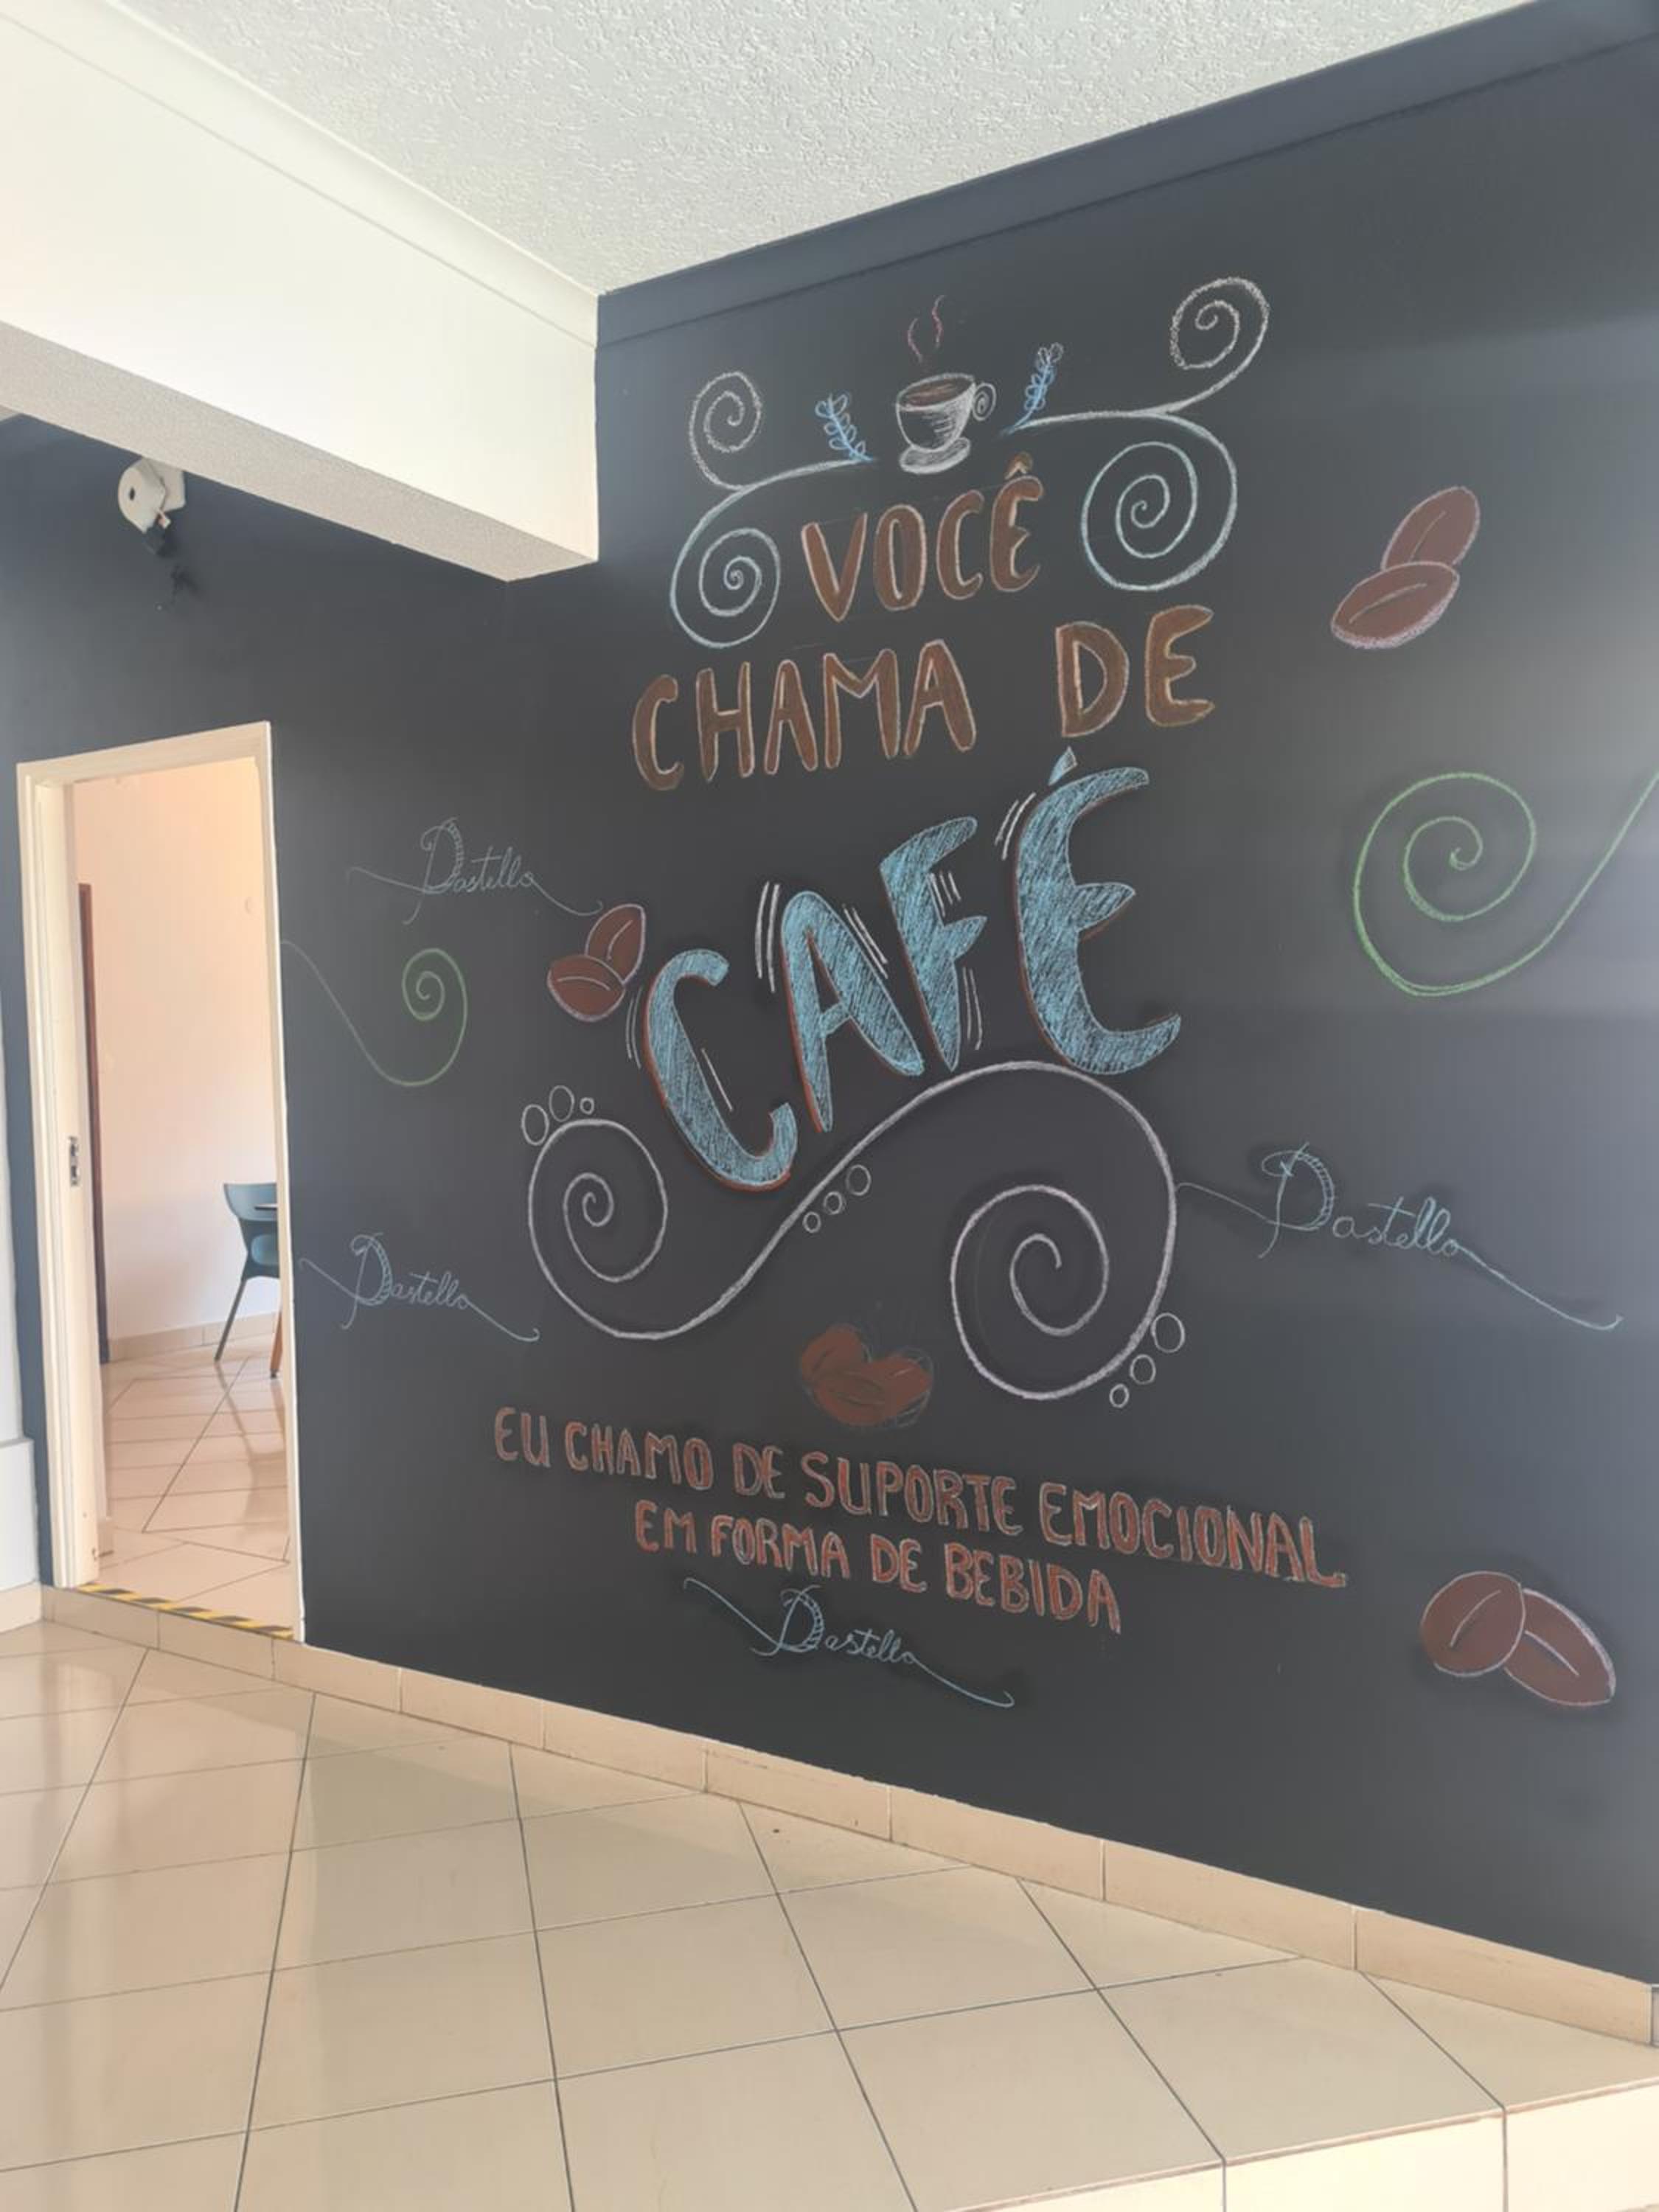 VOCÊ
CHAMA DE
CAFÉ
Dastella
Dastella
Dastella
EU CHAMO DE SUPORTE EMOCIONAL
EM FORMA DE BEBIDA
Dastella